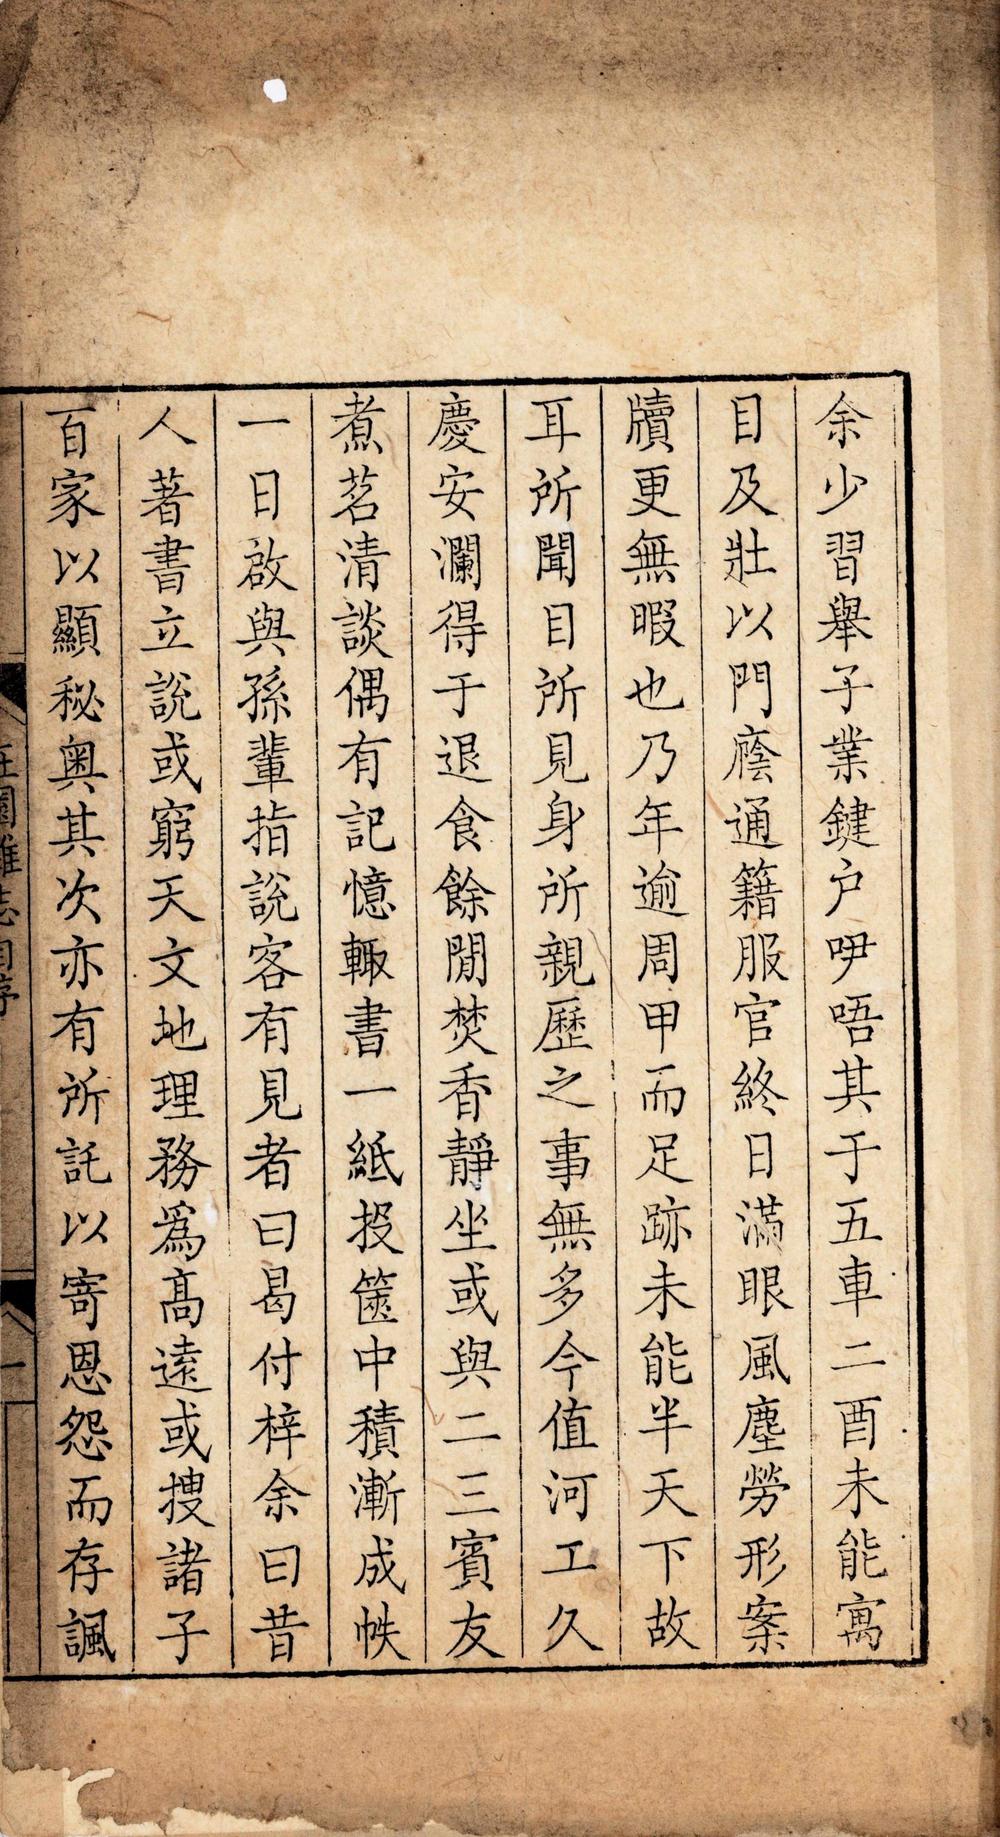 余少習舉子業鍵户吚唔其于五車二酉未能寓
目及壯以門廕通籍服官終日滿眼風塵勞形案
牘更無暇也乃年逾周甲而足跡未能半天下故
耳所聞目所見身所親歷之事無多今值河工久
慶安瀾得于退食餘閒焚香靜坐或與二三賓友
煮茗清談偶有記憶輙書一紙投篋中積漸成帙
一日啟與孫輩指説客有見者曰曷付梓余曰昔
人著書立說或窮天文地理務爲高遠或搜諸子
百家以顯秘奥其次亦有所託以寄恩怨而存諷
在園雜志自序
一